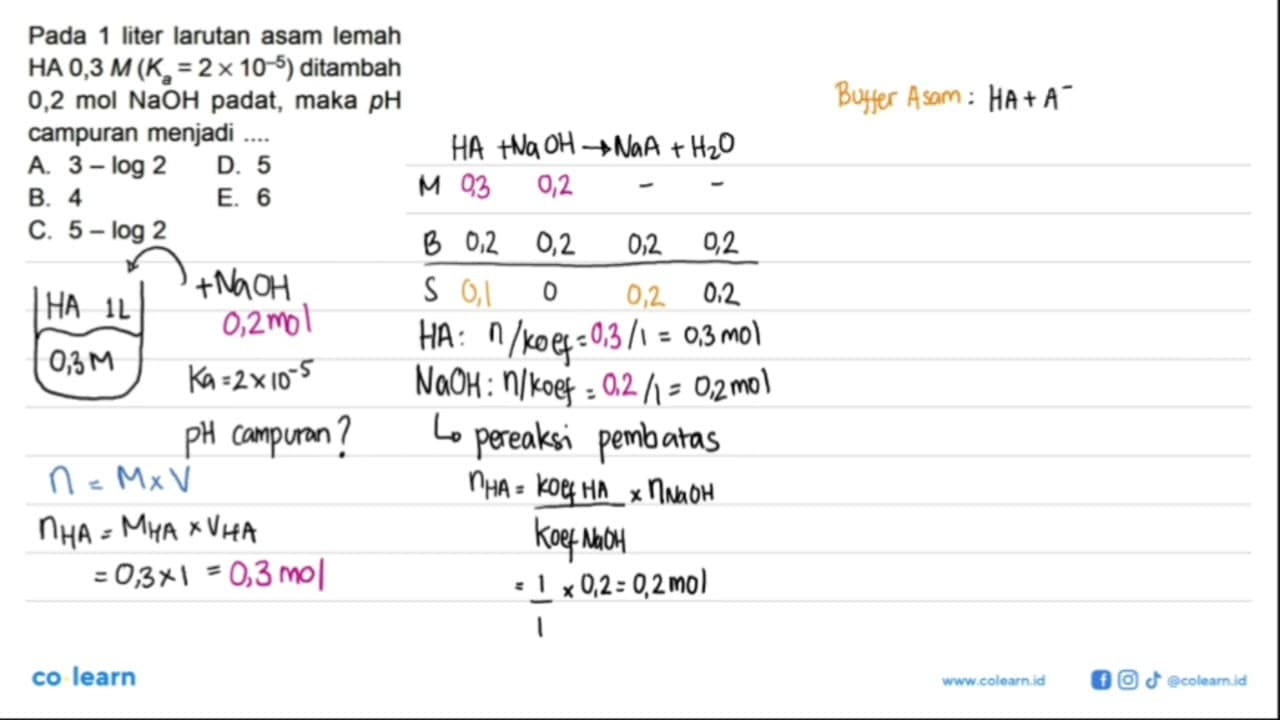 Pada 1 liter larutan asam lemah
HA 0,3 M (Kₐ = 2 × 10⁻⁵) ditambah
0,2 mol NaOH padat, maka pH
campuran menjadi ....
A. 3 – log 2 D. 5
B. 4 E. 6
C. 5 – log 2
HA 1L
0,3 M
+NaOH
0,2 mol
Ka = 2×10⁻⁵
pH campuran?
n = M × V
nHA = MHA × VHA
= 0,3 × 1 = 0,3 mol
HA + NaOH → NaA + H₂O
M 0,3 0,2 - -
B 0,2 0,2 0,2 0,2
S 0,1 0 0,2 0.2
HA : n/koef = 0,3/1 = 0,3 mol
NaOH : n/koef = 0.2/1 = 0,2 mol
↳ pereaksi pembatas
nHA = koef HA × nNaOH
koef NaOH
= 1 × 0,2 = 0,2 mol
1
Buffer Asam : HA + A⁻
co learn
www.colearn.id
@colearn.id